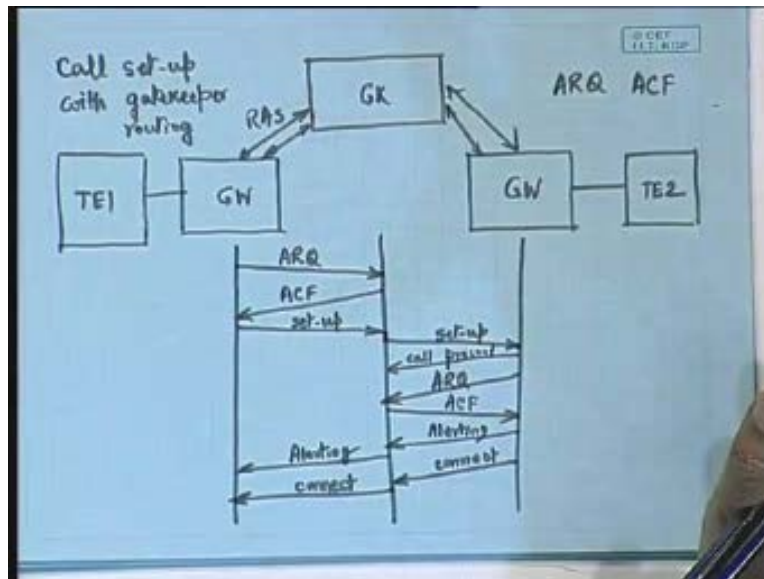 Call set-up
with gatekeeper
routing
GK
ARQ ACF
RAS
TE1
GW
GW
TE2
ARQ
ACF
set-up
set-up
call
ARQ
ACF
Alerting
Alerting
connect
connect